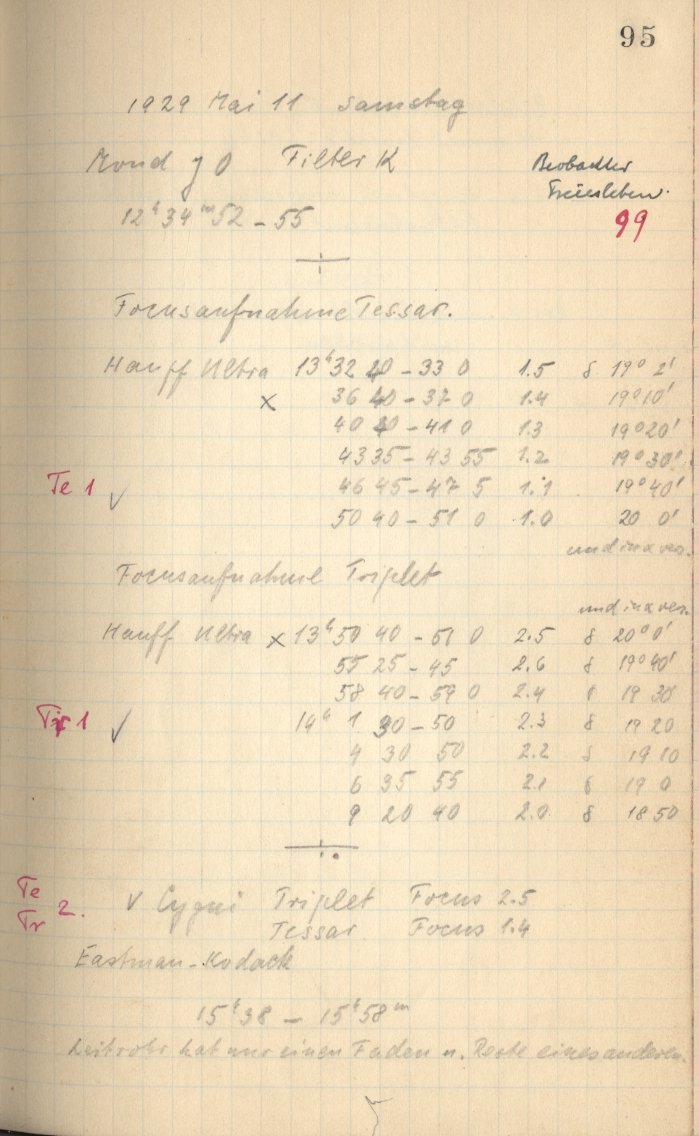 95
1929 Mai 11 Samstag
Mond Filter K
Beobachter
Freiesleben.
12ʰ34ᵐ52 – 55
99
Focusaufnahme Tessar.
Hauff Ultra 13ʰ32 – 33 0 1.5 δ 19° 2'
× 36 40 – 37 0 1.4 19°10'
40 – 41 0 1.3 19°20'
43 35 – 43 55 1.2 19°30'
Te 1 √ 46 45 – 47 5 1.1 19°40'
50 40 – 51 0 1.0 20 0'
und
Focusaufnahme Triplet
und
Hauff Ultra × 13ʰ50 40 – 51 0 2.5 δ 20° 0'
55 25 – 45 2.6 δ 19°40'
58 40 – 59 0 2.4 δ 19 30
Tr 1 √ 14ʰ 1 30 – 50 2.3 δ 19 20
4 30 50 2.2 δ 19 10
6 35 55 2.1 δ 19 0
9 20 40 2.0 δ 18 50
Te
Tr 2.
Cygni Triplet Focus 2.5
Tessar Focus 1.4
Eastman-Kodack
15ʰ38 – 15ʰ58ᵐ
Leitrohr hat nur einen Faden u. Reste eines anderen.